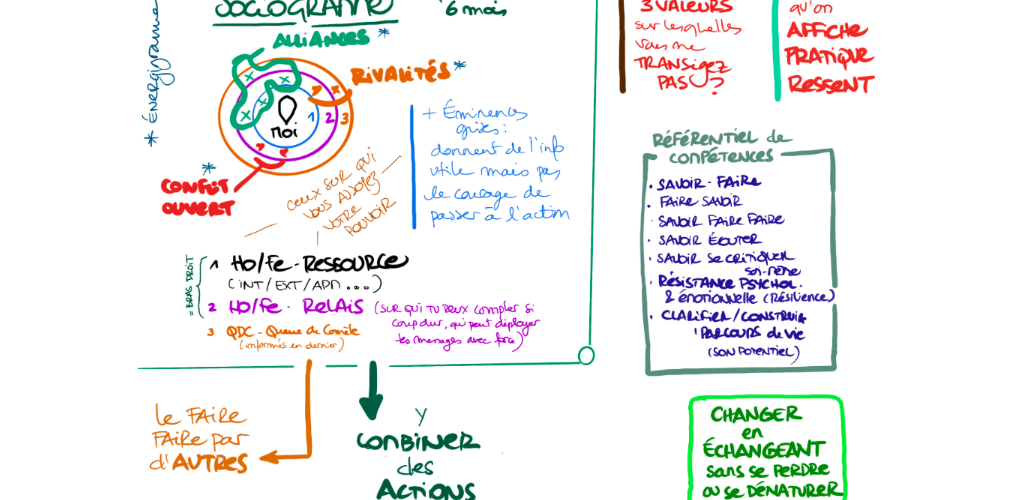 SOCIOGRAMME
6 mois
* ÉNERGYGRAMME
ALLIANCES *
RIVALITÉS *
MOI
1 2 3
*
CONFLIT
OUVERT
CEUX SUR QUI
VOUS
VOTRE
POUVOIR
+ Éminences
grises:
donnent de l'info
utile mais pas
le courage de
passer à l'action
= BRAS DROIT
1 HO/FE-RESSOURCE
(INT/EXT/ADN...)
2 HO/FE-RELAIS (SUR QUI TU PEUX compter si
coup dur, qui peut déployer
les messages avec force)
3 QDC-Queue de Comète
(informés en dernier)
le FAIRE
FAIRE par
d'AUTRES
Y
COMBINER
des
ACTIONS
3 VALEURS
sur lesquelles
vous ne
TRANSIGEZ
PAS?
qu'on
AFFICHE
PRATIQUE
RESSENT
RÉFÉRENTIEL de
COMPÉTENCES
• SAVOIR-FAIRE
• FAIRE SAVOIR
• SAVOIR FAIRE FAIRE
• SAVOIR ÉCOUTER
• SAVOIR SE CRITIQUER
SOI-MÊME
• RÉSISTANCE PSYCHOL.
& émotionnelle (Résilience)
• CLARIFIER/CONSTRUIRE
PARCOURS de VIE
(SON POTENTIEL)
CHANGER
en
ÉCHANGEANT
sans se PERDRE
ou se DÉNATURER